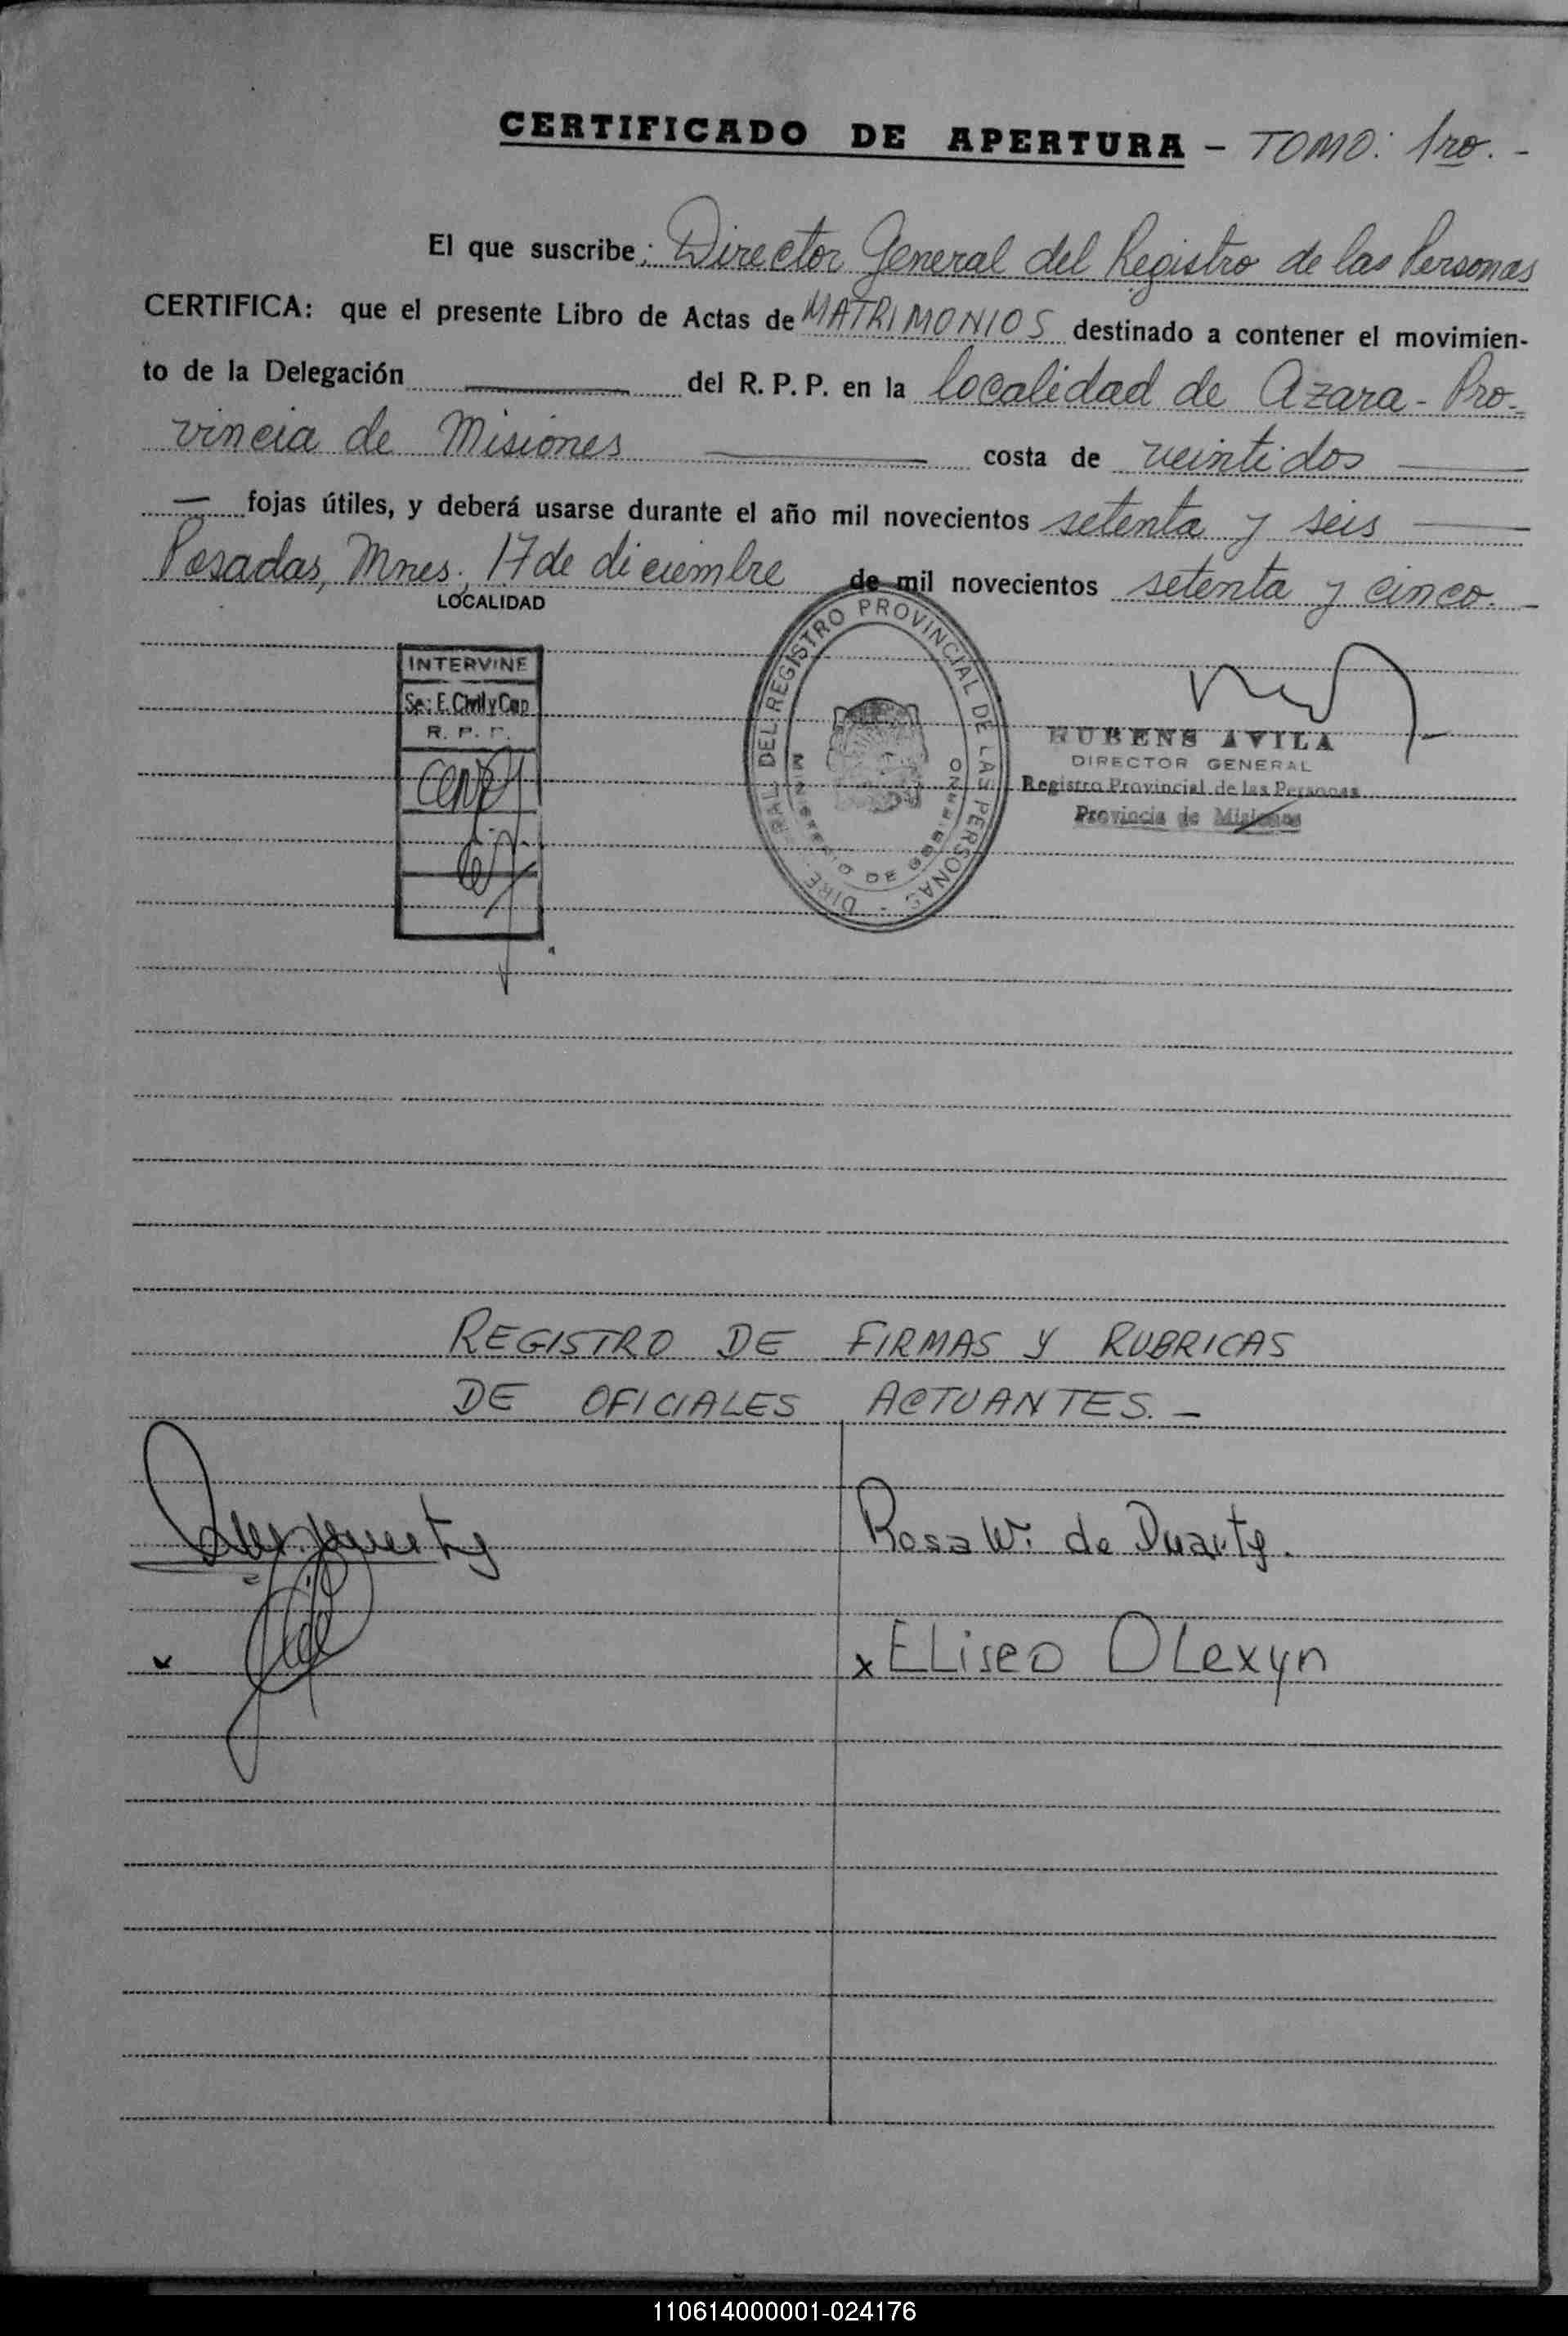 CERTIFICADO DE APERTURA - TOMO: 1ro. -
El que suscribe: Director General del Registro de las Personas
CERTIFICA: que el presente Libro de Actas de MATRIMONIOS destinado a contener el movimien-
to de la Delegación ——— del R. P. P. en la localidad de Azara - Pro-
vincia de Misiones ——— costa de veintidos ———
— fojas útiles, y deberá usarse durante el año mil novecientos setenta y seis ———
Posadas, Mnes. 17 de diciembre de mil novecientos setenta y cinco. -
LOCALIDAD
INTERVINE
Se: E. Civil y Cap
R. P. P.
DIRE. RAL DEL REGISTRO PROVINCIAL DE LAS PERSONAS -
MINISTERIO DE GOBIERNO
RUBENS AVILA
DIRECTOR GENERAL
Registro Provincial de las Personas
Provincia de Misiones
REGISTRO DE FIRMAS Y RUBRICAS
DE OFICIALES ACTUANTES. -
Rosa W. de Duarte.
x ELiseo OLexyn
110614000001-024176